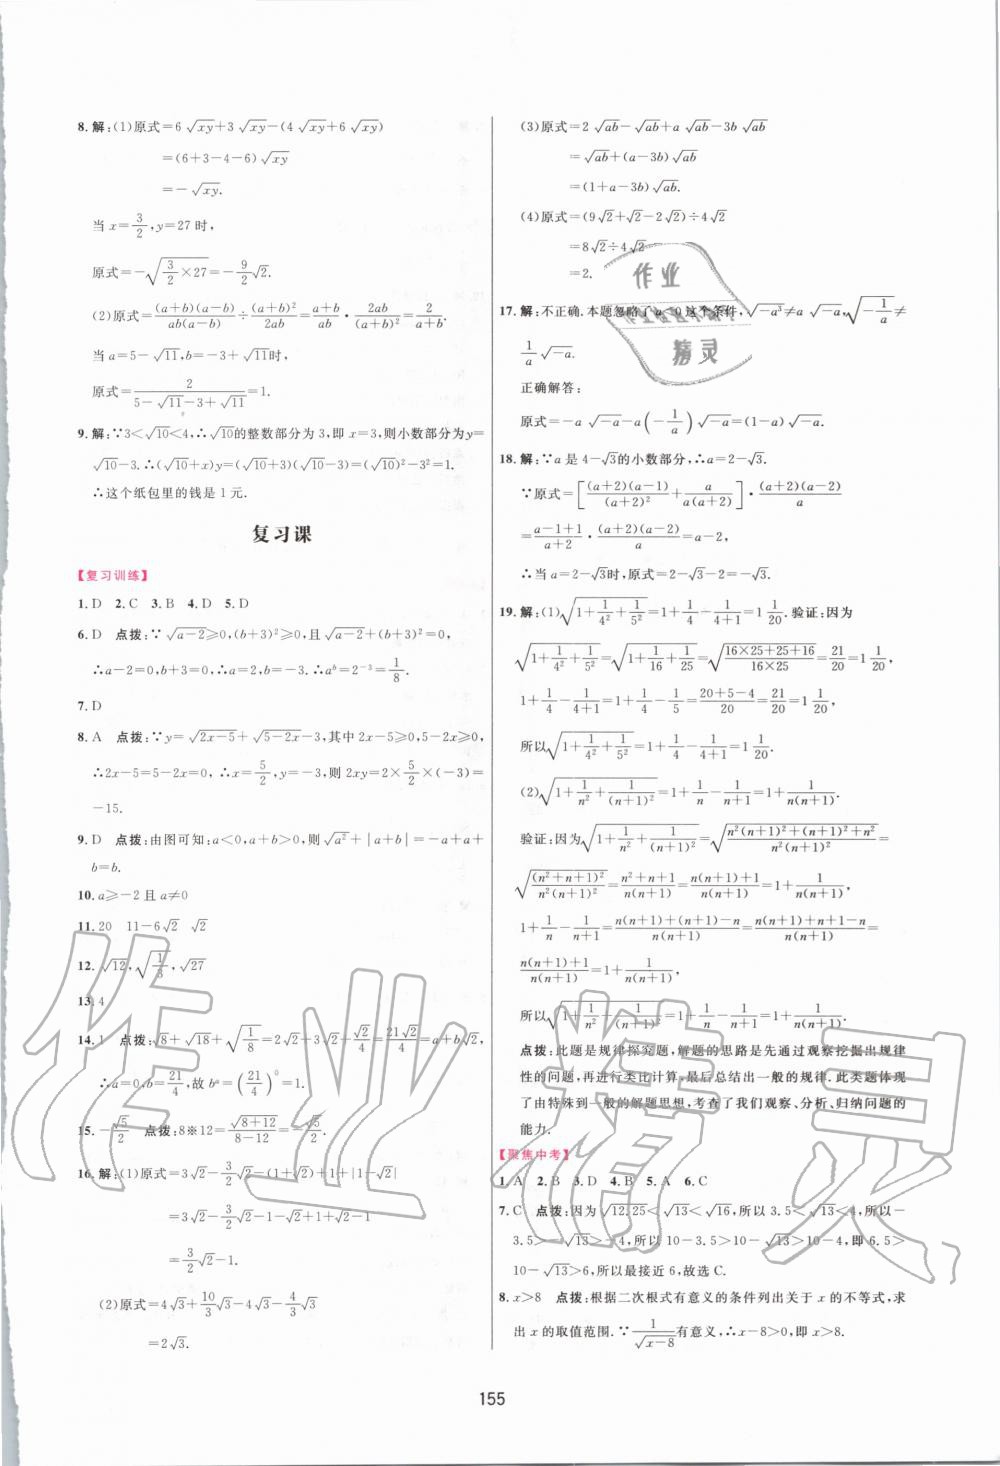 8.解:(1)原式=6√xy+3√xy-(4√xy+6√xy)
=(6+3-4-6)√xy
=-√xy.
当 x=3/2,y=27 时,
原式=-√(3/2×27)=-9/2√2.
(2)原式=(a+b)(a-b)/ab(a-b)÷(a+b)²/2ab=(a+b)/ab·2ab/(a+b)²=2/(a+b).
当 a=5-√11,b=-3+√11时,
原式=2/(5-√11-3+√11)=1.
9.解:∵3<√10<4,∴√10的整数部分为 3,即 x=3,则小数部分为y=
√10-3.∴(√10+x)y=(√10+3)(√10-3)=(√10)²-3²=1.
∴这个纸包里的钱是 1 元.
复习课
【复习训练】
1.D 2.C 3.B 4.D 5.D
6.D 点拨:∵√(a-2)≥0,(b+3)²≥0,且√(a-2)+(b+3)²=0,
∴a-2=0,b+3=0,∴a=2,b=-3.∴aᵇ=2⁻³=1/8.
7.D
8.A 点拨:∵y=√(2x-5)+√(5-2x)-3,其中 2x-5≥0,5-2x≥0,
∴2x-5=5-2x=0,∴x=5/2,y=-3,则 2xy=2×5/2×(-3)=
-15.
9.D 点拨:由图可知:a<0,a+b>0,则√a²+|a+b|=-a+a+
b=b.
10.a≥-2 且 a≠0
11.20 11-6√2 √2
12.√12,√(1/3),√27
13.4
14.1 点拨:√8+√18+√(1/8)=2√2+3√2+√2/4=21√2/4=a+b√2,
∴a=0,b=21/4,故 bᵃ=(21/4)⁰=1.
15.-√5/2 点拨:8※12=√(8+12)/(8-12)=-√5/2.
16.解:(1)原式=3√2-3/2√2-(1+√2)+1+|1-√2|
=3√2-3/2√2-1-√2+1+√2-1
=3/2√2-1.
(2)原式=4√3+10/3√3-4√3-4/3√3
=2√3.
(3)原式=2√ab-√ab+a√ab-3b√ab
=√ab+(a-3b)√ab
=(1+a-3b)√ab.
(4)原式=(9√2+√2-2√2)÷4√2
=8√2÷4√2
=2.
17.解:不正确.本题忽略了 a<0 这个条件,√-a³≠a√-a,√(-1/a)≠
1/a√-a.
正确解答:
原式=-a√-a-a(-1/a)√-a=(1-a)√-a.
18.解:∵a 是 4-√3的小数部分,∴a=2-√3.
∵原式=[(a+2)(a-1)/(a+2)²+a/a(a+2)]·(a+2)(a-2)/a
=(a-1+1)/(a+2)·(a+2)(a-2)/a=a-2,
∴当 a=2-√3时,原式=-√3.
19.解:(1)√(1+1/4²+1/5²)=1+1/4-1/(4+1)=1 1/20.验证:因为
√(1+1/4²+1/5²)=√(1+1/16+1/25)=√((16×25+25+16)/(16×25))=21/20=1 1/20,
1+1/4-1/(4+1)=1+1/4-1/5=(20+5-4)/20=21/20=1 1/20,
所以√(1+1/4²+1/5²)=1+1/4-1/(4+1)=1 1/20.
(2)√(1+1/n²+1/(n+1)²)=1+1/n-1/(n+1)=1+1/n(n+1).
验证:因为√(1+1/n²+1/(n+1)²)=√((n²(n+1)²+(n+1)²+n²)/n²(n+1)²)=
√((n²+n+1)²/n²(n+1)²)=(n²+n+1)/n(n+1)=(n(n+1)+1)/n(n+1)=1+1/n(n+1),
1+1/n-1/(n+1)=(n(n+1)+(n+1)-n)/n(n+1)=(n(n+1)+n+1-n)/n(n+1)=
(n(n+1)+1)/n(n+1)=1+1/n(n+1),
所以√(1+1/n²+1/(n+1)²)=1+1/n-1/(n+1)=1+1/n(n+1).
点拨:此题是规律探究题,解题的思路是先通过观察挖掘出规律
性的问题,再进行类比计算,最后总结出一般的规律.此类题体现
了由特殊到一般的解题思想,考查了我们观察、分析、归纳问题的
能力.
【聚焦中考】
1.A 2.B 3.D 4.B 5.A 6.C
7.C 点拨:因为√12.25<√13<√16,所以 3.5<√13<4,所以-
3.5>-√13>-4,所以 10-3.5>10-√13>10-4,即 6.5>
10-√13>6,所以最接近 6,故选 C.
8.x>8 点拨:根据二次根式有意义的条件列出关于 x 的不等式,求
出 x 的取值范围.∵1/√(x-8)有意义,∴x-8>0,即 x>8.
155
作业
精灵
作业精灵